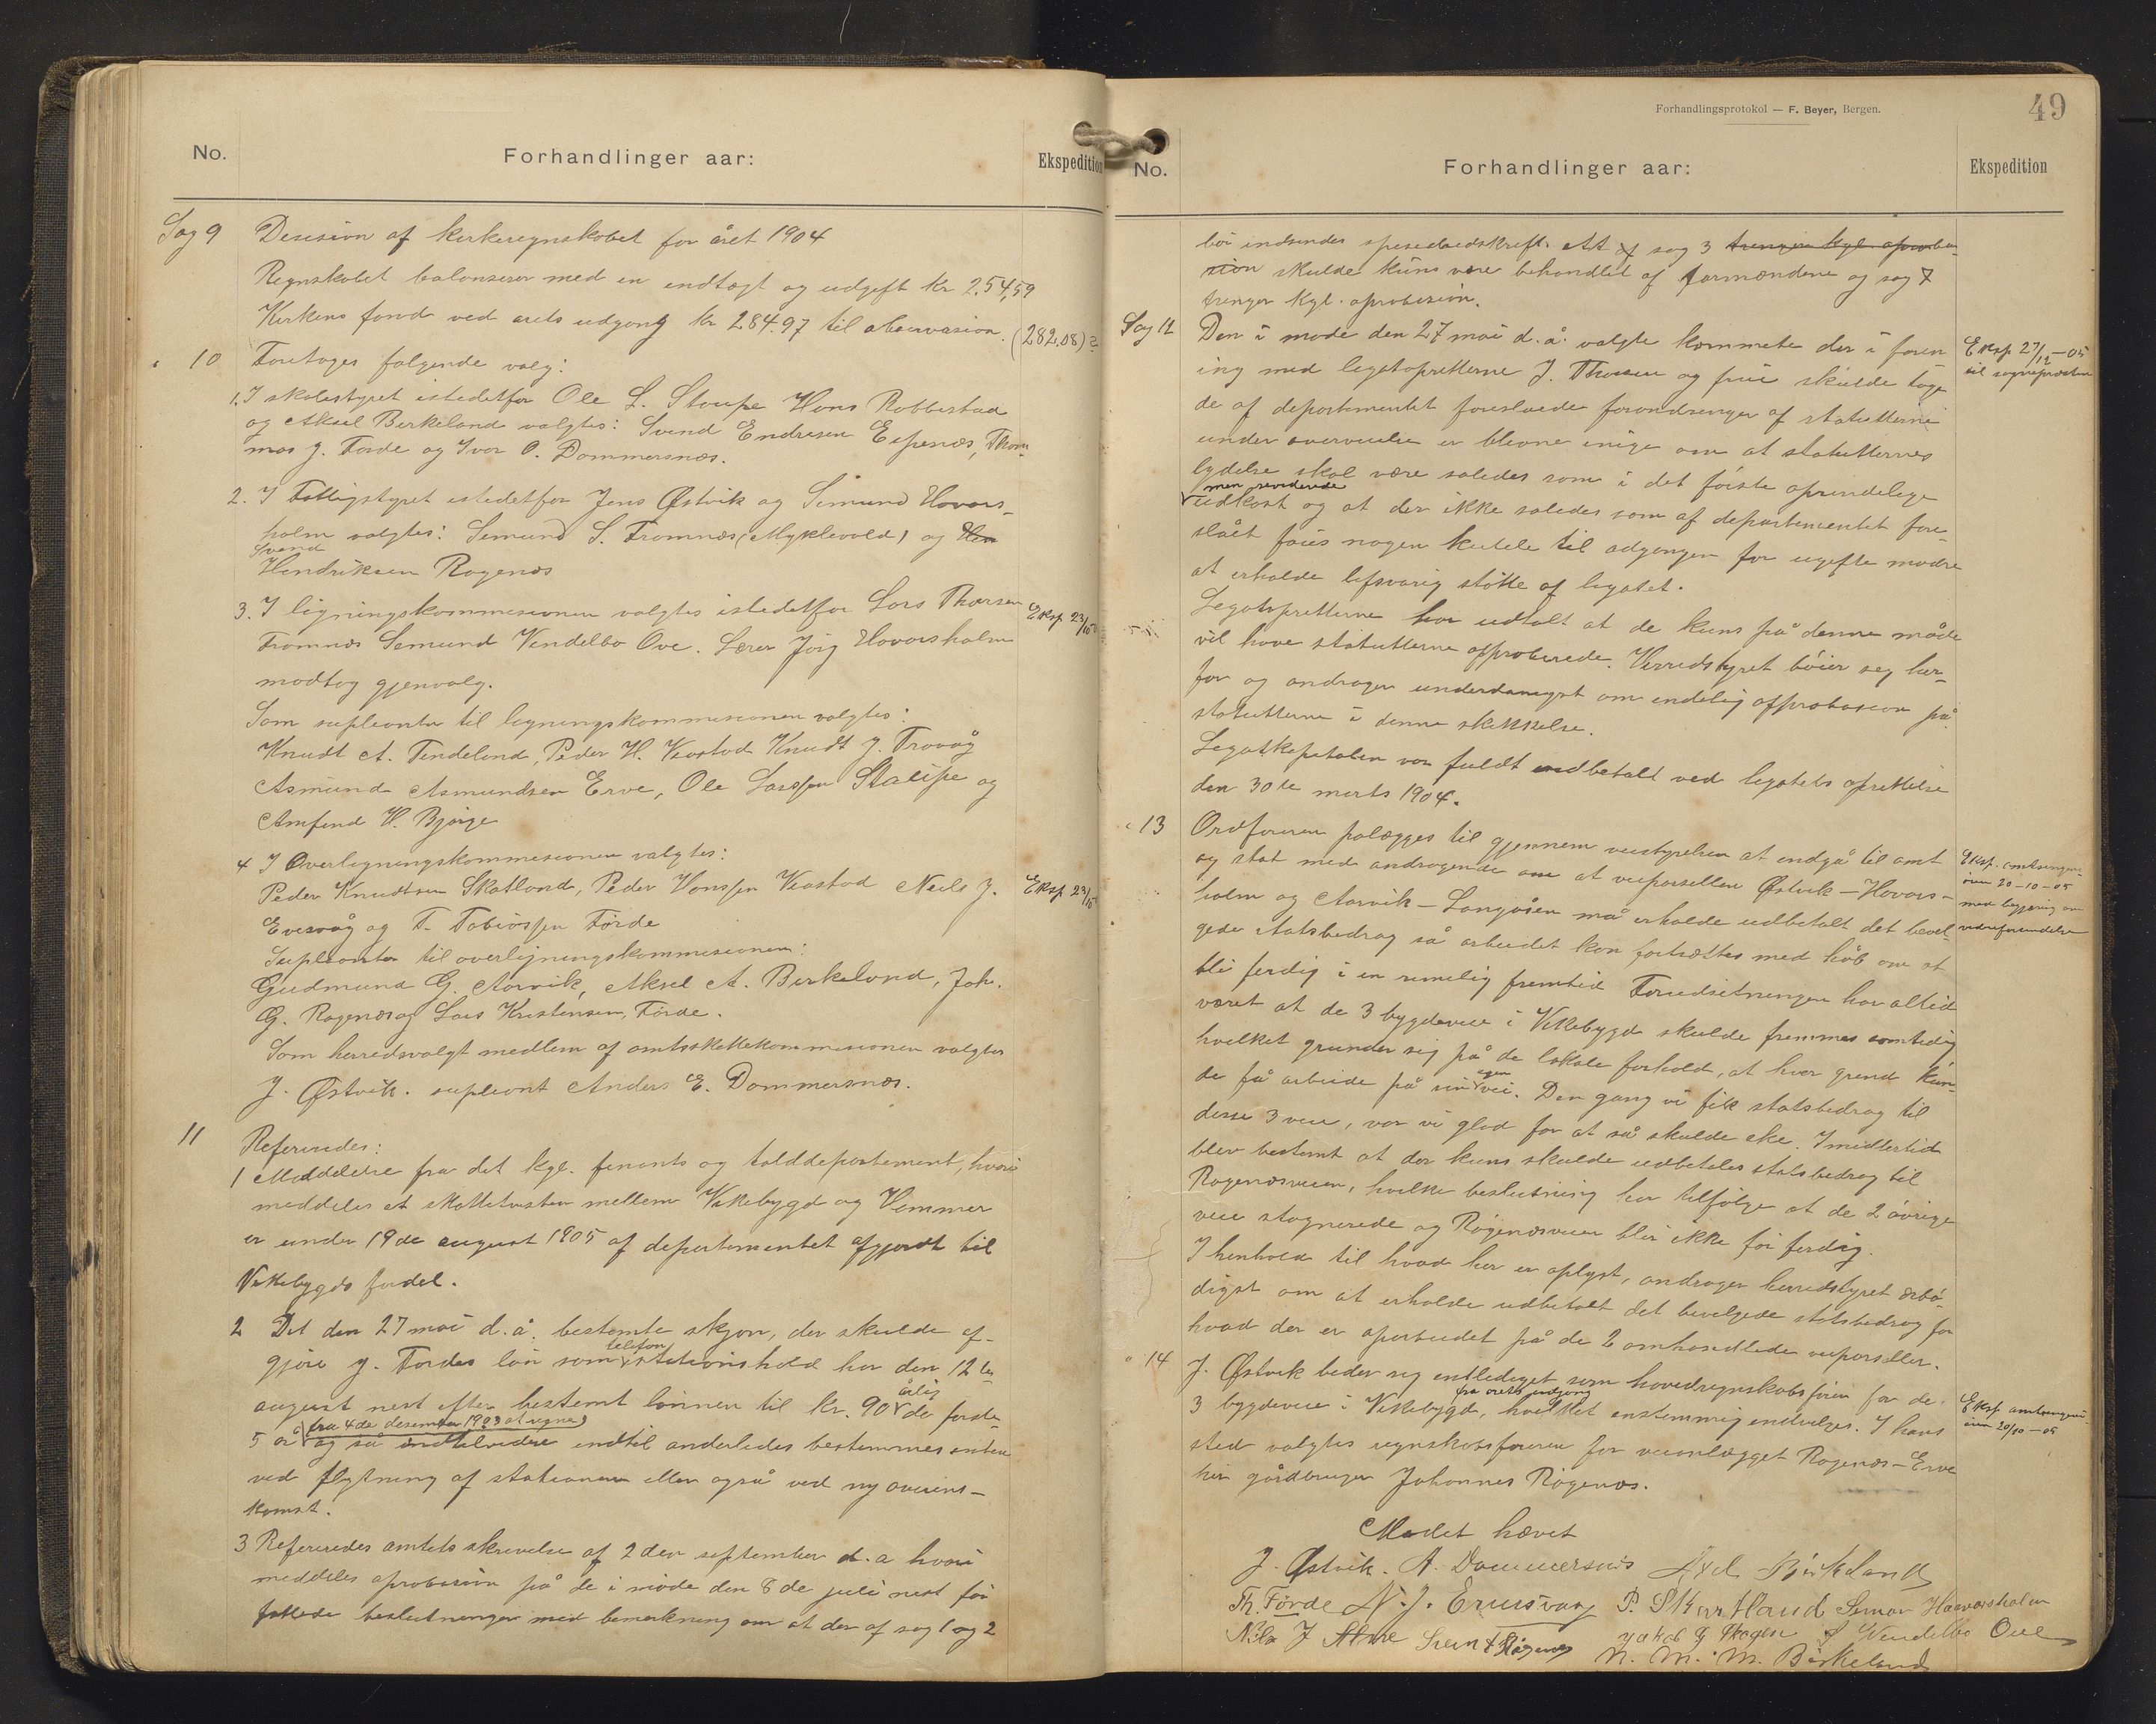 No.
Forhandlinger aar:
Ekspedition
Sag 9
Desision af kirkeregnskabet for året 1904
Regnskabet balanserer med en indtægt og udgift kr 254,59
Kirkens fond ved årets udgang kr 284.97 til observasion. (282.08)?
" 10
Foretages følgende valg:
1. I skolestyret istedetfor Ole L. Stoupe Hans Robbestad
og Aksel Birkeland valgtes: Svend Endresen Espenæs, Thom-
mas J. Førde og Ivar O. Dommersnæs.
2. I Fattigstyret istedetfor Jens Østvik og Simund Hovars-
holm valgtes: Semund S. Fromnæs (Myklevold) og
Svend
Hendriksen Røgenæs
3. I ligningskommisionen valgtes istedetfor Lars Thorsen
Eksp 23/10
Fromnæs Semund Vendelbo Ove. Lærer Jørg Hovarsholm
modtog gjenvalg.
Som supleanter til ligningskommisionen valgtes:
Knudt A. Tindeland, Peder H. Veastad Knudt J. Trovåg
Asmund Asmundsen Erve, Ole Larssen Staupe og
Amfind H. Bjørge
4 I Overligningskommisionen valgtes:
Peder Knudtsen Skatland, Peder Hanssen Veastad Neils J.
Eksp 23/10
Eversvåg og T. Tobiassen Førde
Supleanter til overligningskommisionen:
Gudmund G. Aarvik, Aksel A. Birkeland, Joh.
G. Røgenæs og Lars Kristensen, Førde.
Som herredsvalgt medlem af amtsskattekommisionen valgtes
J. Østvik. supleant Anders E. Dommersnæs.
11
Refereredes:
1 Meddelelse fra det kgl. finants og tolddepartement, hvori
meddeles at skattetvisten mellem Vikebygd og Hammer
er under 19de august 1905 af departementet afgjordt til
Vikebygds fordel.
2 Det den 27 mai d. å. bestemte skjøn, der skulde af-
gjøre J. Førdes løn som telefonstationshold har den 12te
august nest efter bestemt lønnen til kr. 90 årlig de første
5 år (fra 4de desember 1903 at regne) og så indtilvidere indtil anderledes bestemmes enten
ved flytning af stationen eller også ved ny overens-
komst.
3 Refereredes amtets skrivelse af 2den september d. a hvori
meddeles aprobasion på de i møde den 8de juli nest før
fattede beslutninger med bemerkning om at der af sag 1 og 2
Forhandlingsprotokol — F. Beyer, Bergen.
49
No.
Forhandlinger aar:
Ekspedition
bør indsendes spesialudskrift. At sag 3 trenger kgl. aproba-
sion skulde kuns være behandlet af formændene og sag 7
trenger kgl. aprobasion.
Sag 12
Den i møde den 27 mai d. å. valgte kommete der i foren
Eksp 27/12–05
til sognepræsten
ing med legatopretterne J. Thorsen og frue skulde tage
de af departementet foreslaede forandrenger af statutterne
under overveielse er blevne enige om at statutternes
lydelse skal være saledes som i det første oprindelige
men reviderede
udkast og at der ikke saledes som af departementet fore-
slået føies nogen klausule til adgangen for ugifte mødre
at erholde lifsvarig støtte af legatet.
Legatopretterne har udtalt at de kuns på denne måde
vil have statutterne approberede. Herredstyret bøier seg her-
for og andrager underdanigst om endelig approbasion på
statutterne i denne skikkelse.
Legatkapitalen var fuldt indbetalt ved legatets oprettelse
den 30te marts 1904.
" 13
Ordføreren pålægges til gjennem veistyrelsen at indgå til amt
Eksp. amtsingeni-
øren 20–10–05
med begjæring om
videreforsendelse
og stat med andragende om at veiparsellen Østvik – Hovars-
holm og Aarvik – Langåsen må erholde udbetalt det bevil-
gede statsbidrag så arbeidet kan fortsættes med håb om at
bli ferdig i en rimelig fremtid Forudsetningen har altid
været at de 3 bygdeveie i Vikebygd skulde fremmes samtidig
hvilket grunder sig på de lokale forhold, at hver grend kun-
de få arbeide på sin egen vei. Den gang vi fik statsbidrag til
disse 3 veie, var vi glad for at så skulde ske. Imidlertid
blev bestemt at der kuns skulde udbetales statsbidrag til
Røgenæsveien, hvilke beslutning har tilfølge at de 2 øvrige
veie stagnerede og Røgenæsveien blir ikke før ferdig.
I henhold til hvad her er oplyst, andrager herredstyret ærbø-
digst om at erholde udbetalt det bevilgede statsbidrag for
hvad der er oparbeidet på de 2 omhandlede veiparseller.
" 14
J. Østvik beder sig entlediget som hovedregnskabsfører for de
fra årets udgang
Eksp amtsingeni-
øren 20/10–05
3 bygdeveie i Vikebygd, hvilket enstemmig indvilges. I hans
sted valgtes regnskabsføreren for veianlægget Røgenæs – Erve
hr. gårdbruger Johannes Røgenæs.
Mødet hævet
J. Østvik. A. Dommersnæs Axel Birkeland
Th. Førde N. J. Eruisvaag P. Skartland Semon Haavarsholm
Nils J Alme Svend H Røgenes Jakob G Thagen S Vendelbo Ove
N. M. M. Birkeland